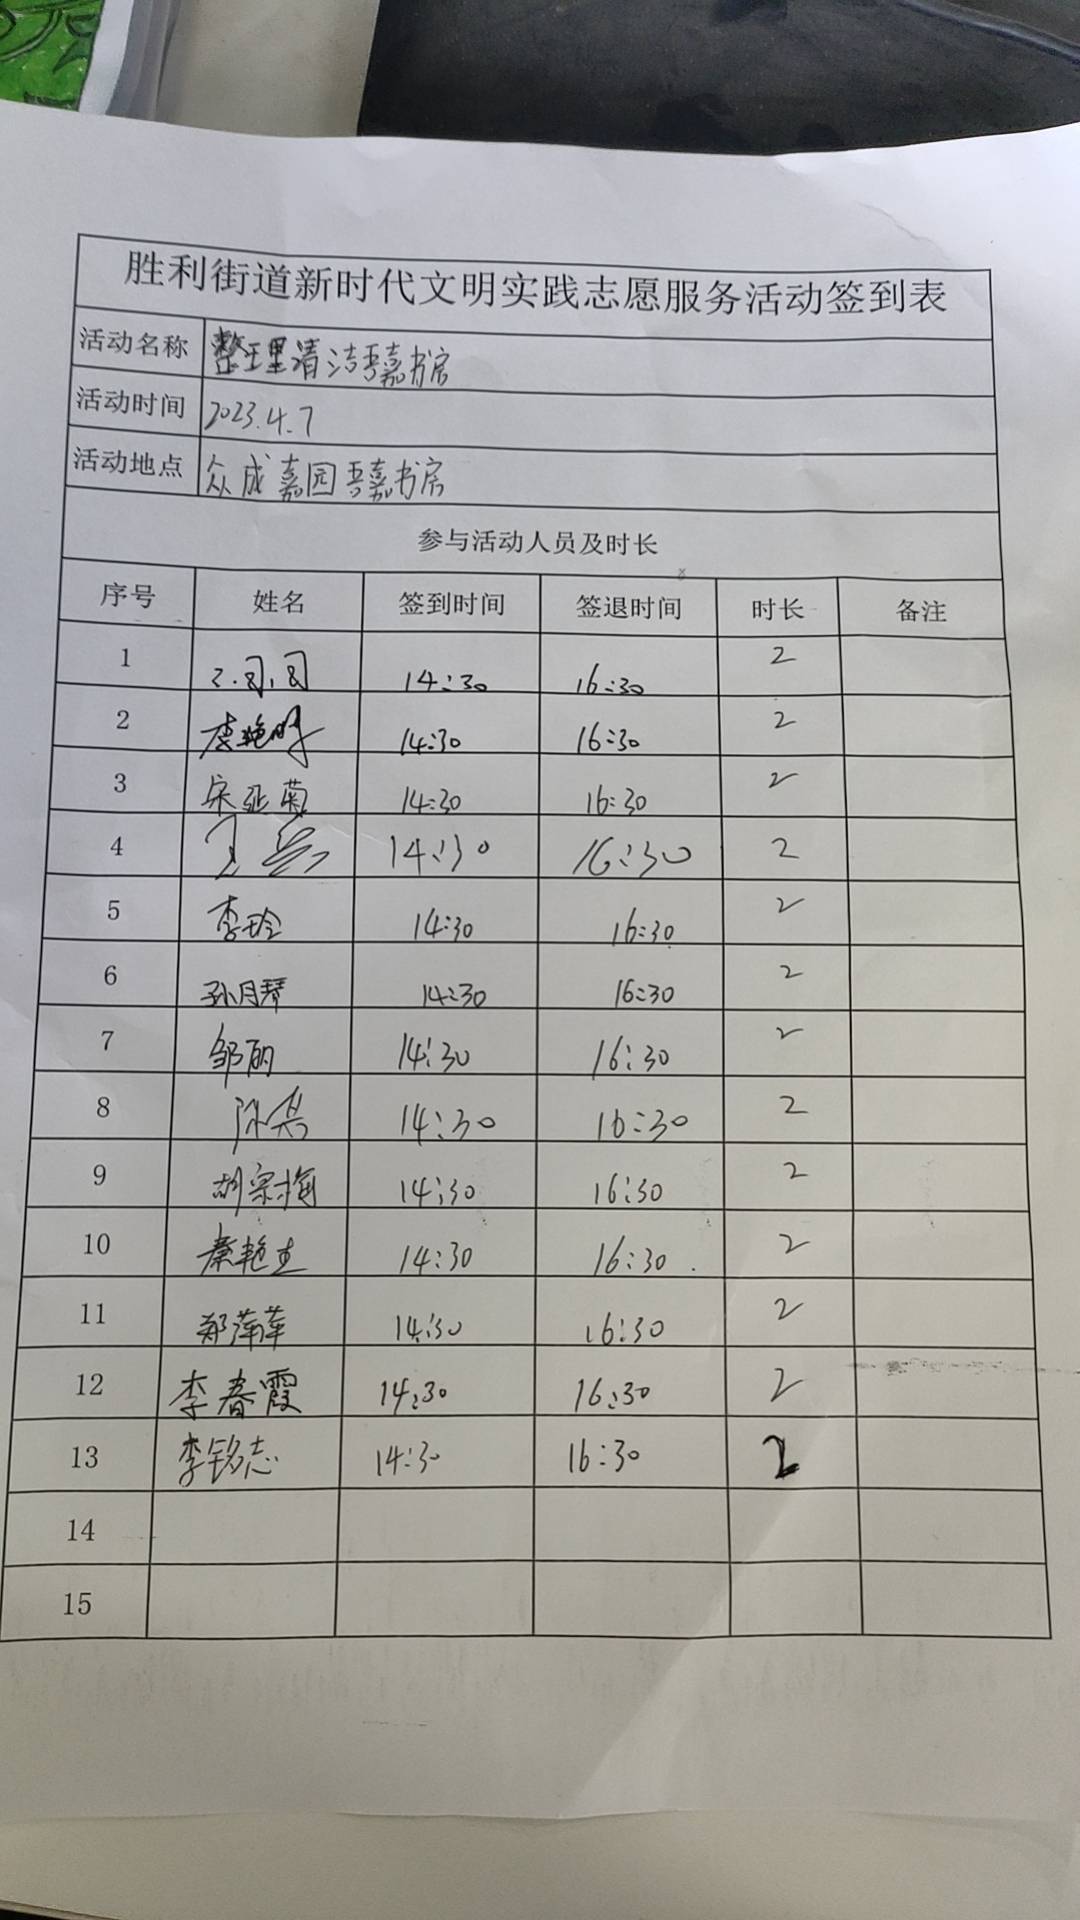 胜利街道新时代文明实践志愿服务活动签到表
活动名称 整理清洁吾嘉书房
活动时间 2023.4.7
活动地点 众成嘉园吾嘉书房
参与活动人员及时长
序号 姓名 签到时间 签退时间 时长 备注
1 14:30 16:30 2
2 李艳 14:30 16:30 2
3 宋亚菊 14:30 16:30 2
4 王 14:30 16:30 2
5 李玲 14:30 16:30 2
6 孙月琴 14:30 16:30 2
7 邹丽 14:30 16:30 2
8 陈 14:30 16:30 2
9 胡宗梅 14:30 16:30 2
10 秦艳 14:30 16:30 2
11 郑萍萍 14:30 16:30 2
12 李春霞 14:30 16:30 2
13 李铭志 14:30 16:30 2
14
15